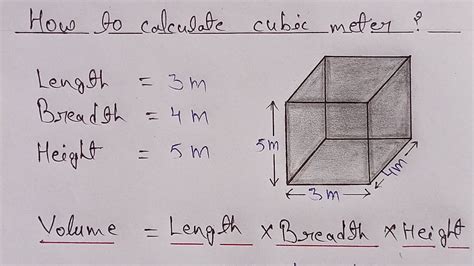 How to calculate cubic meter?
Length = 3 m
Breadth = 4 m
Height = 5 m
5m
4m
3m
Volume = Length × Breadth × Height